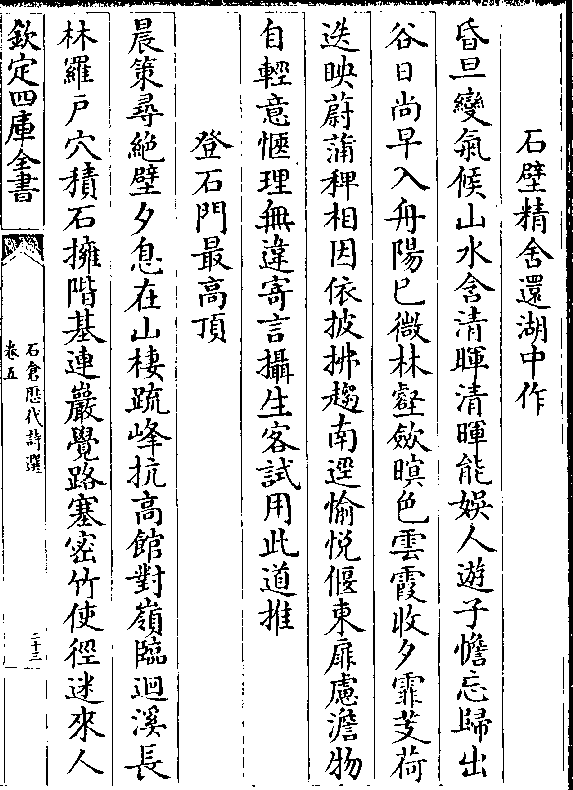 石壁精舍還湖中作
昏旦變氣候山水含清暉清暉能娛人遊子憺忘歸出
谷日尚早入舟陽已微林壑歛暝色雲霞收夕霏芰荷
迭映蔚蒲稗相因依披拂趨南逕愉悅偃東扉慮澹物
自輕意愜理無違寄言攝生客試用此道推
登石門最高頂
晨策尋絶壁夕息在山棲疏峰抗高館對嶺臨迴溪長
林羅戸穴積石擁階基連巖覺路塞密竹使徑迷來人
欽定四庫全書
石倉歷代詩選
卷五
二十三